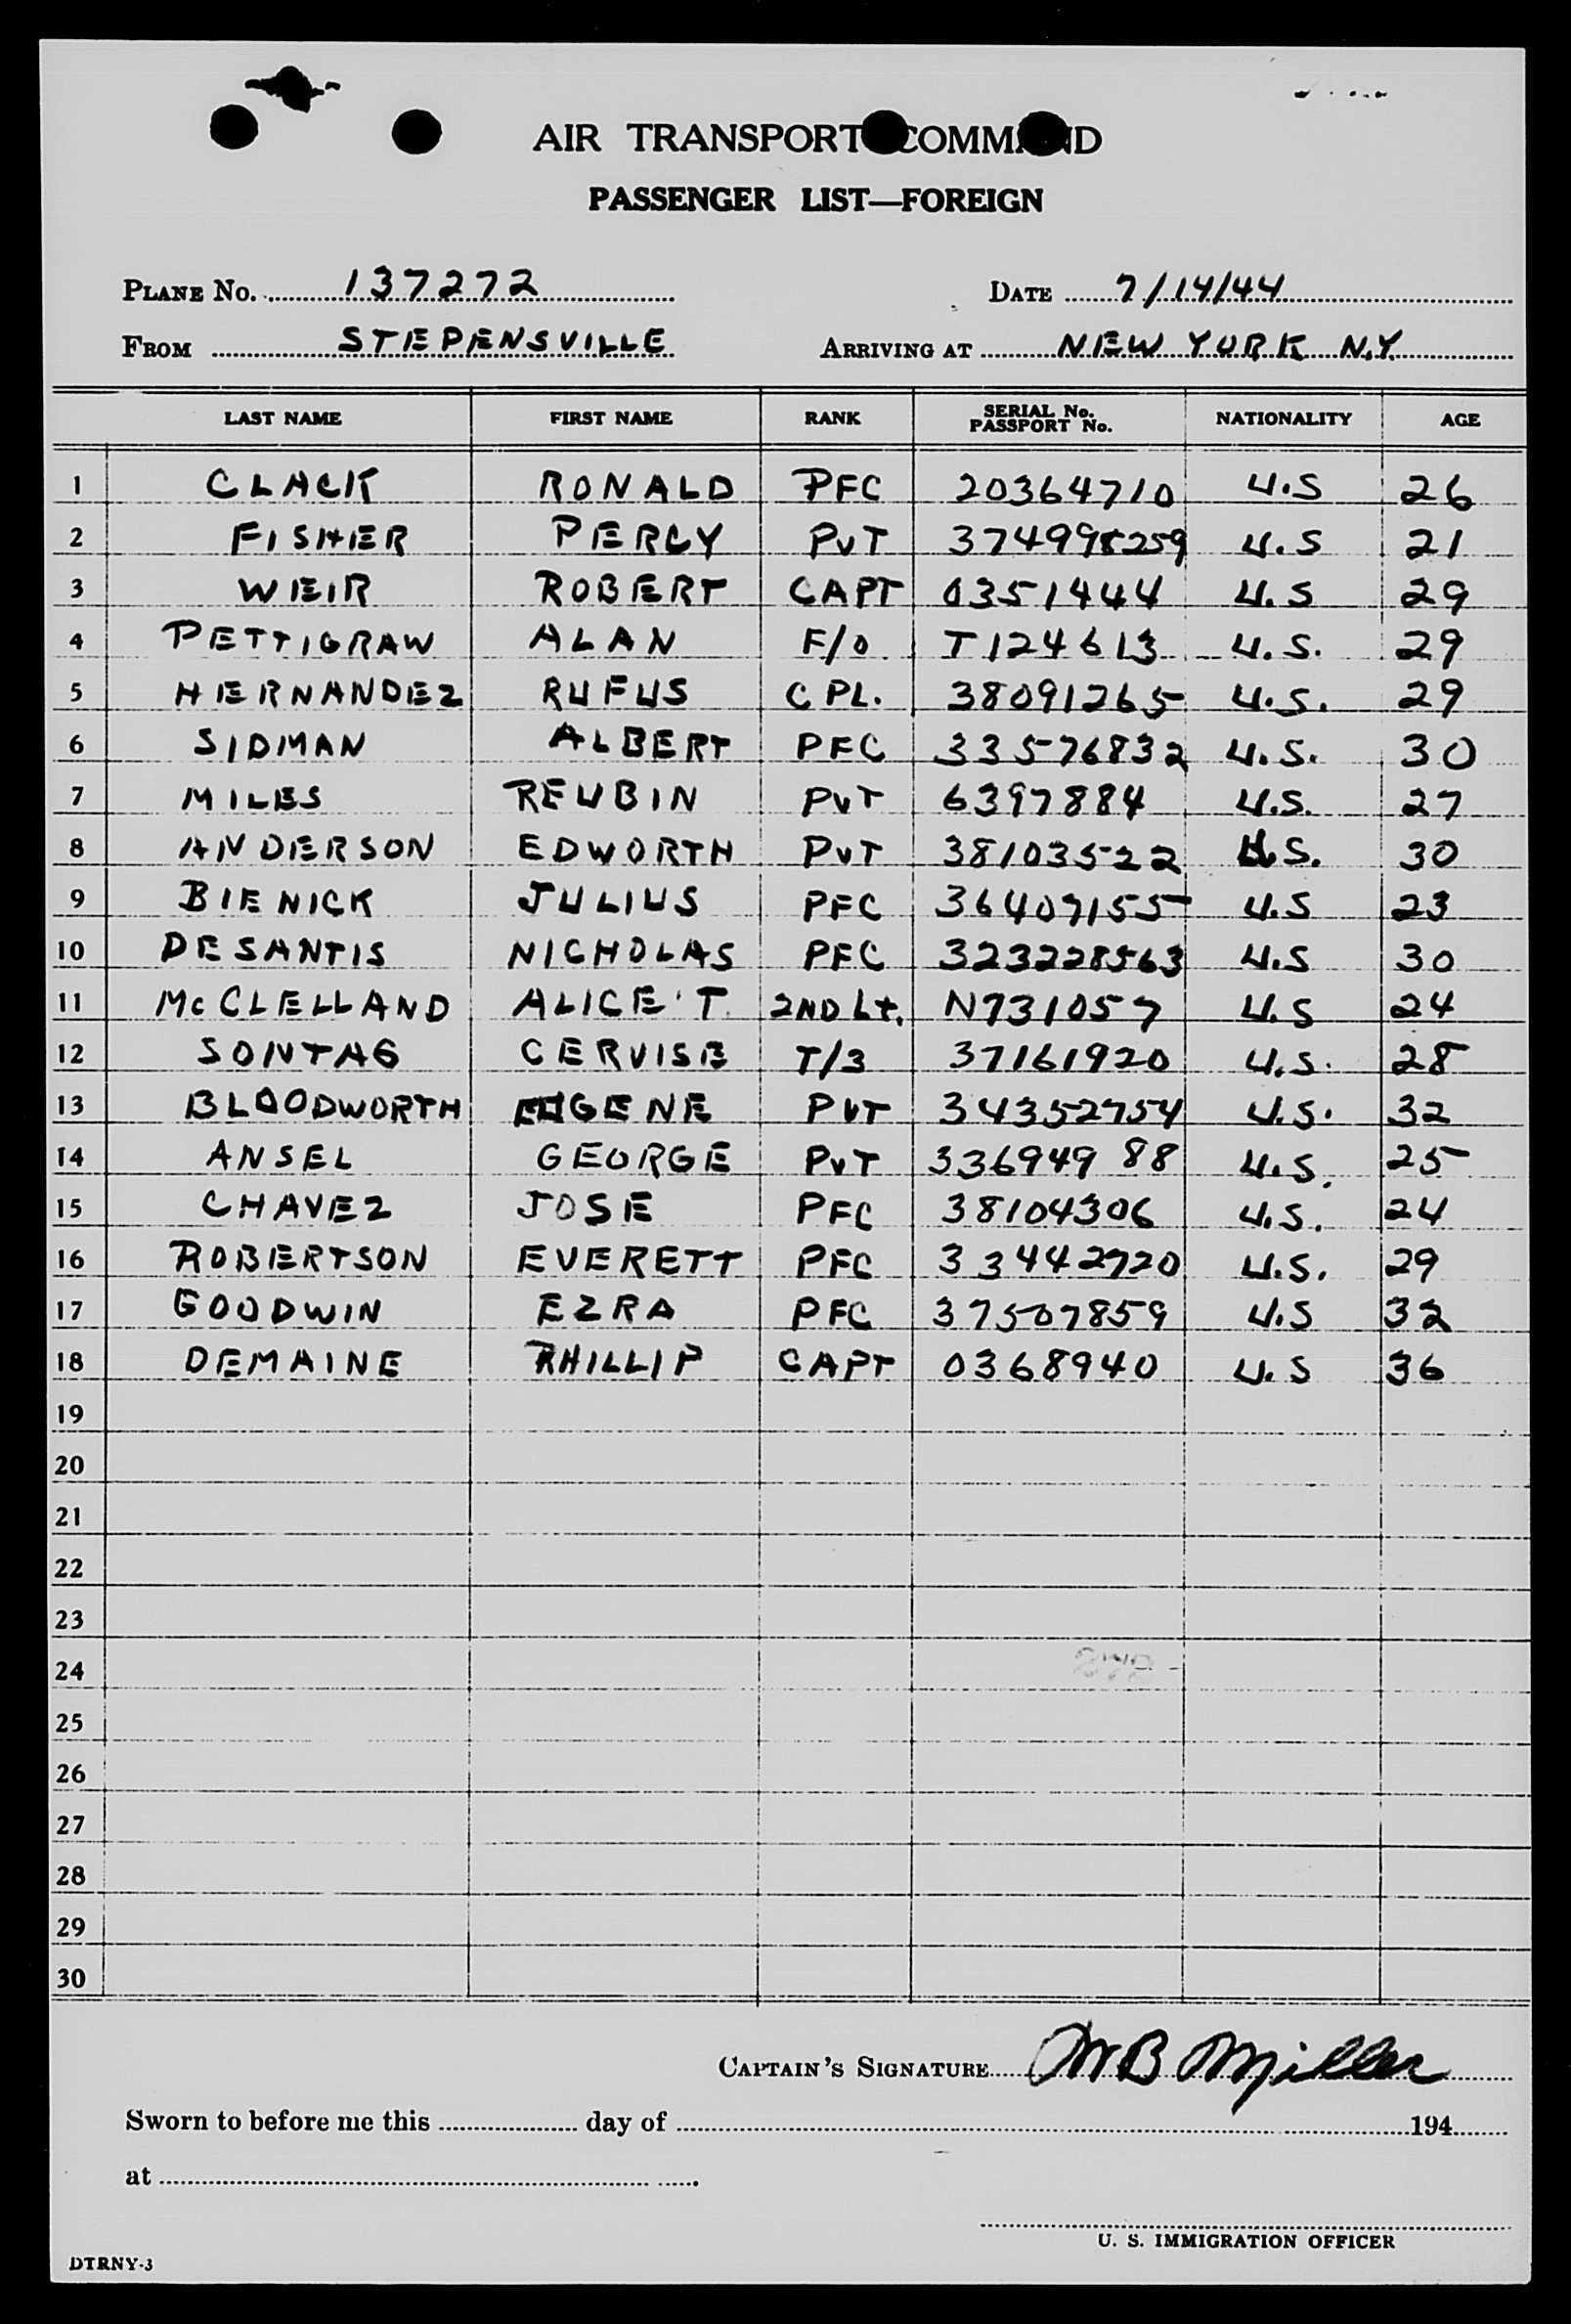 AIR TRANSPORT COMMAND
PASSENGER LIST—FOREIGN
PLANE No. 137272 DATE 7/14/44
FROM STEPENSVILLE ARRIVING AT NEW YORK N.Y.
LAST NAME FIRST NAME RANK SERIAL No. PASSPORT No. NATIONALITY AGE
1 CLACK RONALD PFC 20364710 U.S 26
2 FISHER PERCY PVT 374998259 U.S 21
3 WEIR ROBERT CAPT 0351444 U.S 29
4 PETTIGRAW ALAN F/O T124613 U.S. 29
5 HERNANDEZ RUFUS CPL. 38091265 U.S. 29
6 SIDMAN ALBERT PFC 33576832 U.S. 30
7 MILES REUBIN PVT 6397884 U.S. 27
8 ANDERSON EDWORTH PVT 38103522 U.S. 30
9 BIENICK JULIUS PFC 36407155 U.S 23
10 DESANTIS NICHOLAS PFC 323228563 U.S 30
11 McCLELLAND ALICE T. 2ND Lt. N731057 U.S 24
12 SONTAG CERVISE T/3 37161920 U.S. 28
13 BLOODWORTH EUGENE PVT 34352754 U.S. 32
14 ANSEL GEORGE PVT 336949 88 U.S. 25
15 CHAVEZ JOSE PFC 38104306 U.S. 24
16 ROBERTSON EVERETT PFC 33442720 U.S. 29
17 GOODWIN EZRA PFC 37507859 U.S 32
18 DEMAINE PHILLIP CAPT 0368940 U.S 36
19
20
21
22
23
24
25
26
27
28
29
30
CAPTAIN'S SIGNATURE WB Miller
Sworn to before me this day of 194
at
U. S. IMMIGRATION OFFICER
DTRNY-3